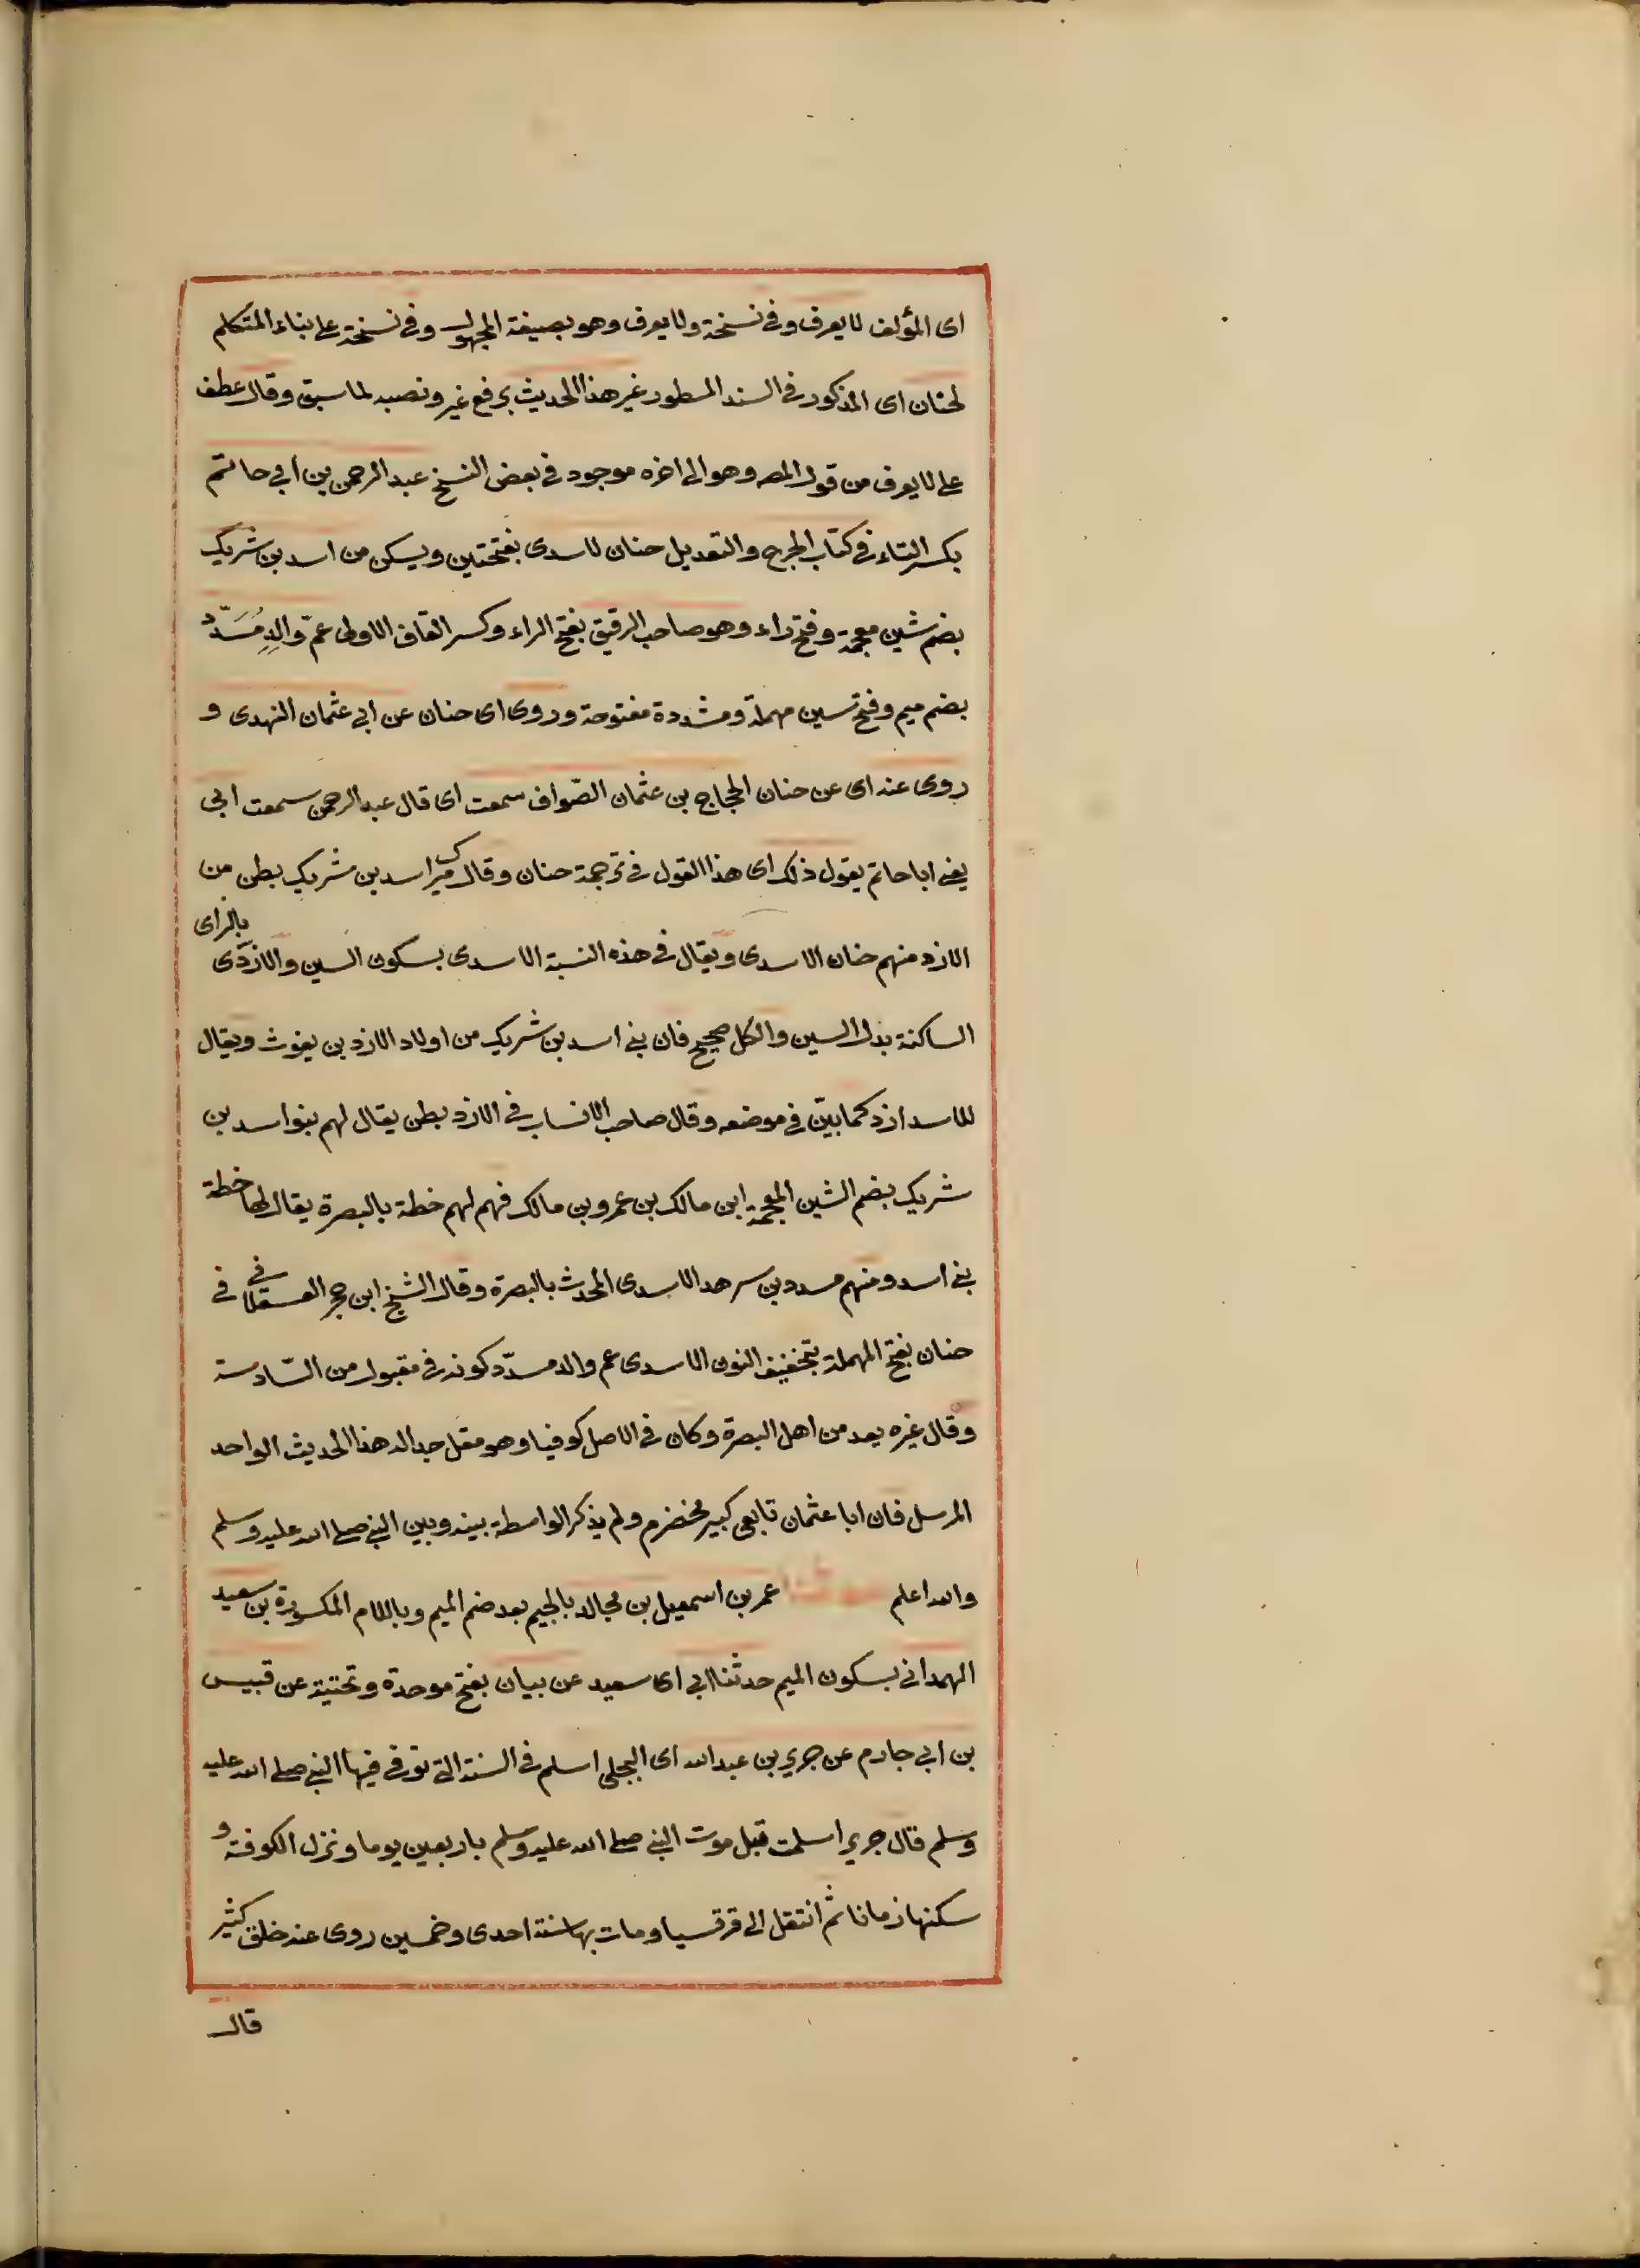 اى المؤلف لا يعرف وفى نسخة ولا يعرف وهو بصيغة المجهول وفى نسخة على بناء المتكلم
لحنان اى المذكور فى السند المسطور غير هذا الحديث برفع غير ونصبه لما سبق وقال عطف
على لا يعرف من قول المصـ وهو الى اخره موجود فى بعض النسخ عبد الرحمن بن ابي حاتم
بكسر التاء فى كتاب الجرح والتعديل حنان لاسدى بفتحتين ويسكن من اسد بن شريك
بضم شين معجمة وفتح راء وهو صاحب الرقيق بفتح الراء وكسر القاف الاولى عمّ والِدِ مُسَدّد
بضم ميم وفتح سين مهملة ومشددة مفتوحة وروى اى حنان عن ابي عثمان النهدى و
روى عنه اى عن حنان الحجاج بن عثمان الصّواف سمعت اى قال عبد الرحمن سمعت ابي
يعنى ابا حاتم يقول ذلك اى هذا القول فى ترجمة حنان وقال ميرك اسد بن شريك بطن من
الازد منهم حنان الاسدى ويقال فى هذه النسبة الاسدى بسكون السين والازدى بالزاى
الساكنة بدل السين والكل صحيح فان بنى اسد بن شريك من اولاد الازد بن يغوث ويقال
للاسد ازد كما بيّن فى موضعه وقال صاحب الانساب فى الازد بطن يقال لهم بنو اسد بن
شريك بضم الشين المعجمة ابن مالك بن عمرو بن مالك فهم لهم خطة بالبصرة يقال لها خطة
بنى اسد ومنهم مسدد بن سرهد الاسدى المحدث بالبصرة وقال الشيخ ابن حجر العسقلانى فى
حنان بفتح المهملة بتخفيف النون الاسدى عم والد مسدّد كونه فى مقبول من السّادسة
وقال غيره يعد من اهل البصرة وكان فى الاصل كوفيا وهو مقل جدا له هذا الحديث الواحد
المرسل فان ابا عثمان تابعى كبير مخضرم ولم يذكر الواسطة بينه وبين النبى صلى الله عليه وسلم
والله اعلم عمر بن اسمعيل بن مجالد بالجيم بعد ضم الميم وباللام المكسورة بن سعيد
الهمدانى بسكون الميم حدثنا ابي اى سعيد عن بيان بفتح موحدة وتحتية عن قبيس
بن ابي حازم عن جرير بن عبد الله اى البجلى اسلم فى السنة التى توفى فيها النبى صلى الله عليه
وسلم قال جرير اسلمت قبل موت النبى صلى الله عليه وسلم باربعين يوما ونزل الكوفة و
سكنها زمانا ثم انتقل الى قرقسيا ومات بها سنة احدى وخمسين روى عنه خلق كثير
قال